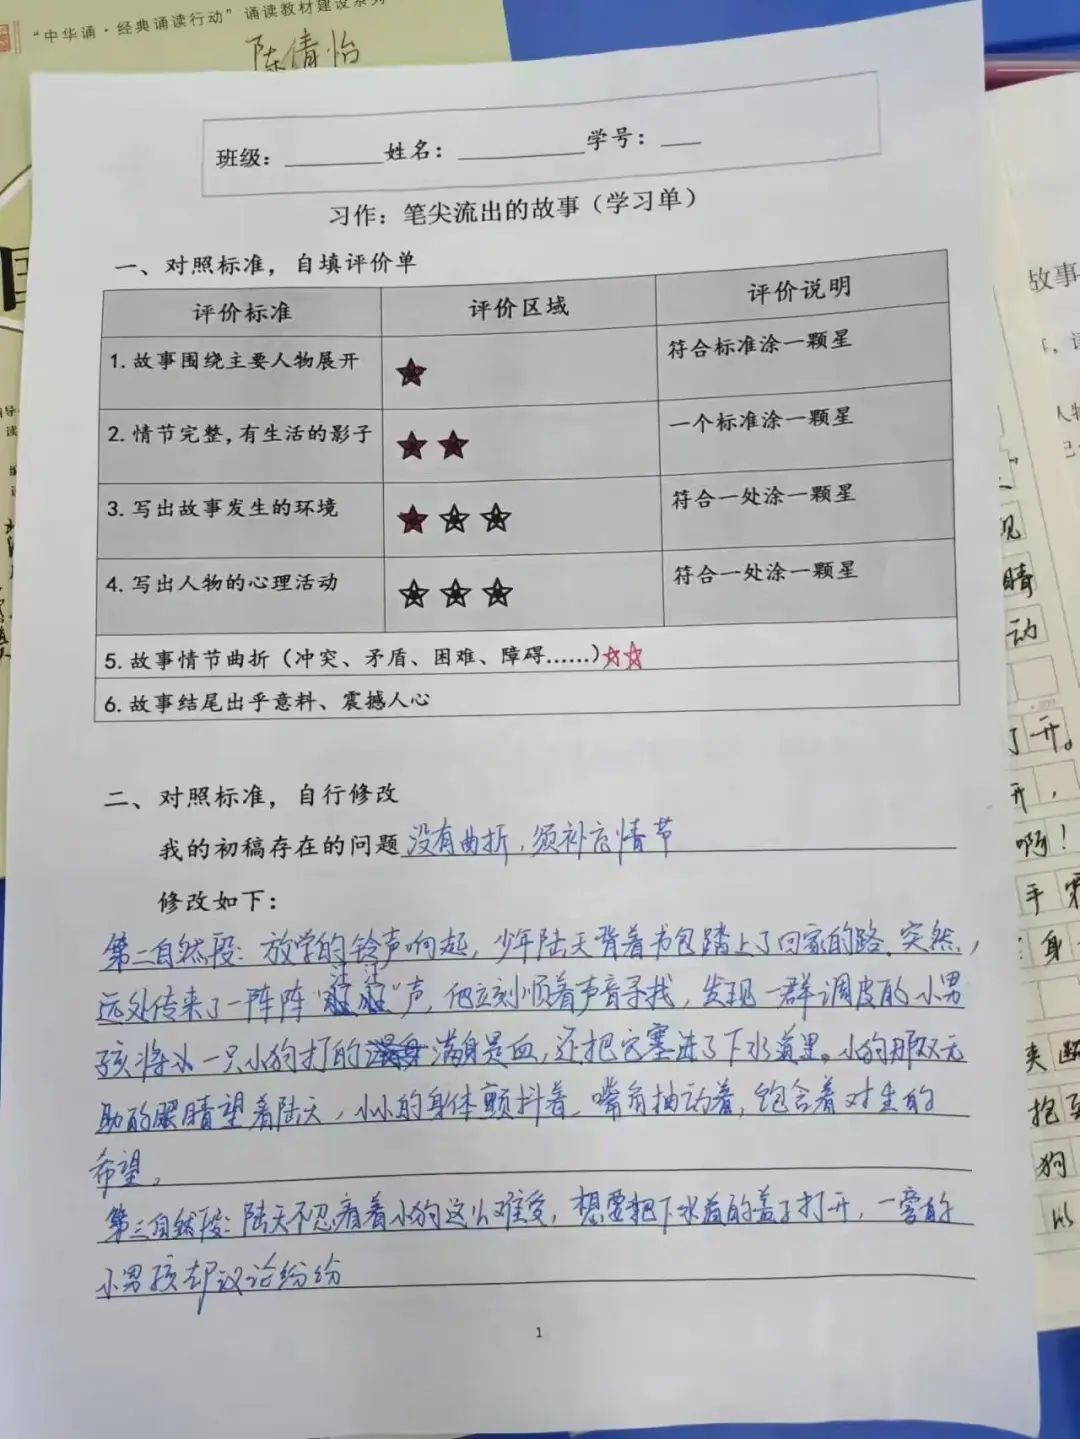 “中华诵·经典诵读行动”诵读教材建设系列
陈倩怡
班级：________姓名：__________学号：___
习作：笔尖流出的故事（学习单）
一、对照标准，自填评价单
评价标准 评价区域 评价说明
1.故事围绕主要人物展开 ★ 符合标准涂一颗星
2.情节完整，有生活的影子 ★★ 一个标准涂一颗星
3.写出故事发生的环境 ★☆☆ 符合一处涂一颗星
4.写出人物的心理活动 ☆☆☆ 符合一处涂一颗星
5.故事情节曲折（冲突、矛盾、困难、障碍……）☆☆
6.故事结尾出乎意料、震撼人心
二、对照标准，自行修改
我的初稿存在的问题没有曲折，须补充情节
修改如下：
第二自然段：放学的铃声响起，少年陆天背着书包踏上了回家的路。突然，
远处传来了一阵阵“汪汪”声，他立刻顺着声音寻找，发现一群调皮的小男
孩将一只小狗打的满身是血，还把它塞进了下水道里。小狗那双无
助的眼睛望着陆天，小小的身体颤抖着，嘴角抽动着，饱含着对生的
希望。
第三自然段：陆天不忍看着小狗这么难受，想要把下水道的盖子打开，一旁的
小男孩却议论纷纷
1
故事
晴
动
开。
开，
啊！
手
身
夹断
抱
狗